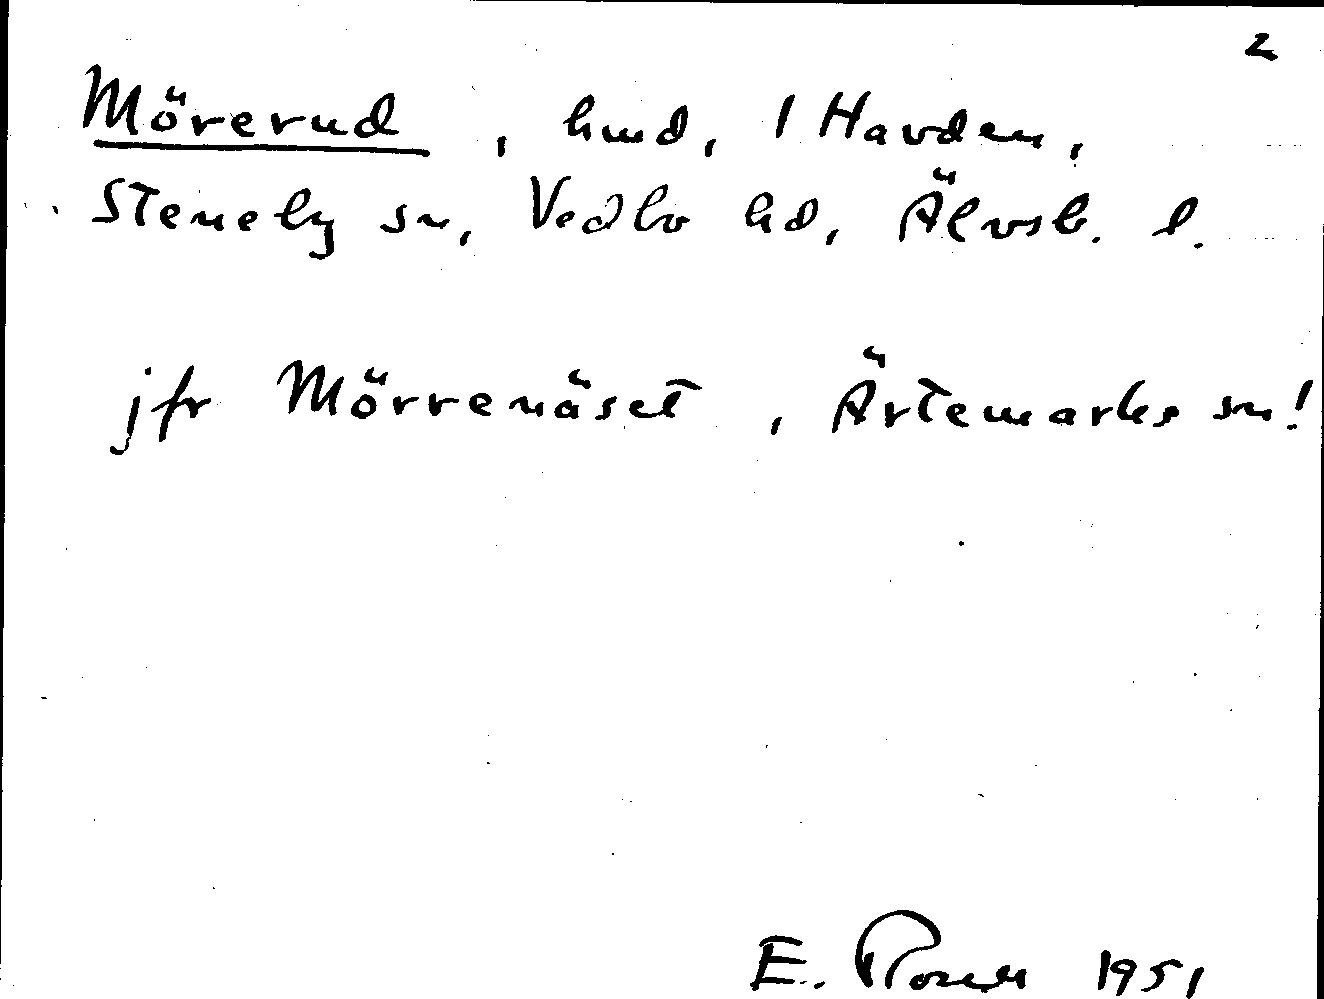 2
Mörerud, hmd, 1 Havden,
Steneby sn, Vedbo hd, Älvsb. l.
jfr Mörrenäset, Ärtemarks sn!
E. Rosell 1951